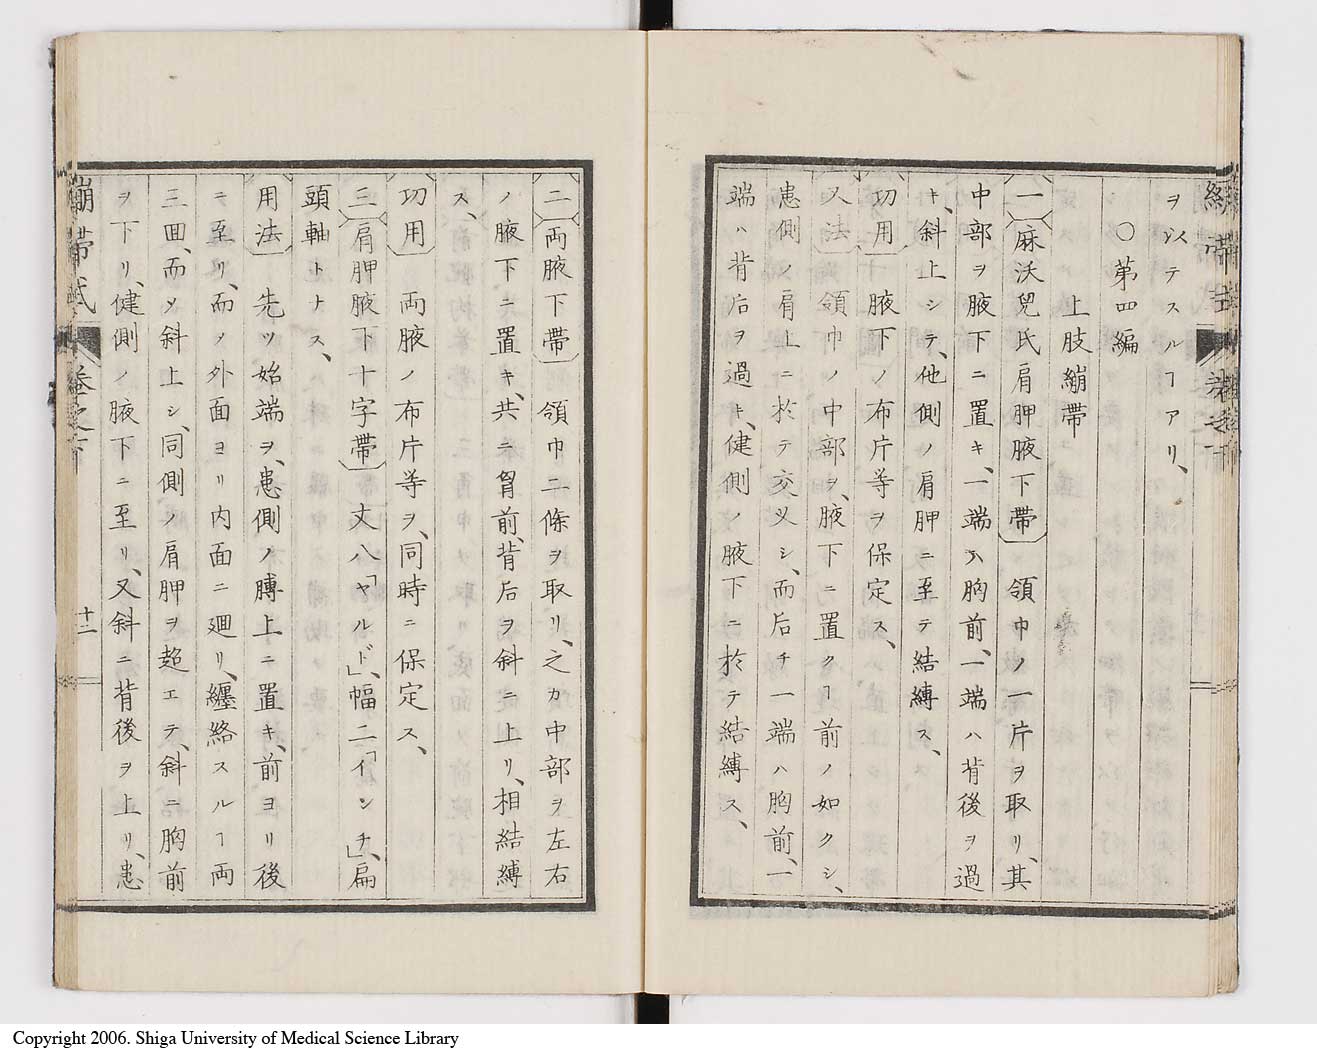 ヲ以テスルヿアリ、
〇第四編
上肢繃帶
一 麻沃兒氏肩胛腋下帶 領巾ノ一片ヲ取リ、其
中部ヲ腋下ニ置キ、一端ハ胸前、一端ハ背後ヲ過
キ、斜上シテ、他側ノ肩胛ニ至テ結縛ス、
功用 腋下ノ布片等ヲ保定ス、
又法 領巾ノ中部ヲ、腋下ニ置クヿ前ノ如クシ、
患側ノ肩上ニ於テ交叉シ、而后チ一端ハ胸前、一
端ハ背后ヲ過キ、健側ノ腋下ニ於テ結縛ス、
二 両腋下帶 領巾二條ヲ取リ、之カ中部ヲ左右
ノ腋下ニ置キ、共ニ胷前、背后ヲ斜ニ上リ、相結縛
ス、
功用 両腋ノ布片等ヲ、同時ニ保定ス、
三 肩胛腋下十字帶 丈八「ヤールド」、幅二「インチ」、扁
頭軸トナス、
用法 先ツ始端ヲ、患側ノ膊上ニ置キ、前ヨリ後
ニ至リ、而メ外面ヨリ内面ニ廻リ、纏絡スルヿ両
三回、而メ斜上シ、同側ノ肩胛ヲ超エテ、斜ニ胸前
ヲ下リ、健側ノ腋下ニ至リ、又斜ニ背後ヲ上リ、患
繃帶式 卷之下
十二